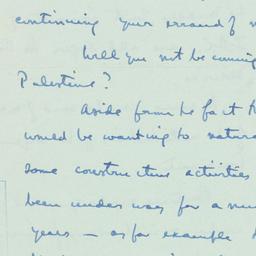 continuing your errand of
Will you not be coming
Palestine?
Aside from the fact
would be wanting to
some constructive activities
been under way for a
years — as for example